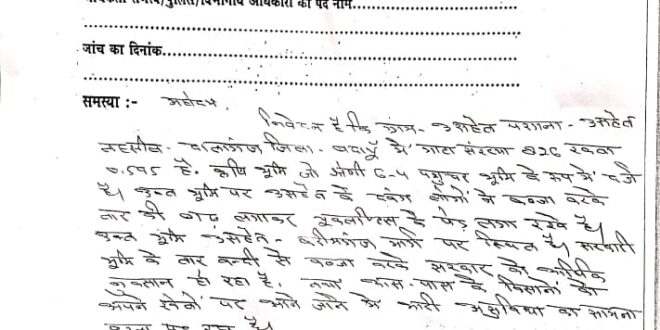 जांच का दिनांक........................................
........................................
समस्या :- महोदय,
निवेदन है कि ग्राम - उसहैत परगना - उसहैत
तहसील - दातागंज जिला - बदायूँ में गाटा संख्या 826 रकवा
0.595 है. कृषि भूमि जो श्रेणी 6-4 पशुचर भूमि के रूप में दर्ज
है। उक्त भूमि पर उसहैत के दबंग लोगों ने कब्जा करके
तार की बाढ़ लगाकर यूकेलिप्टस के पेड़ लगा रखे है।
उक्त भूमि उसहैत - मार्ग पर स्थित है। सरकारी
भूमि के तार बन्दी से कब्जा करके सरकार को आर्थिक
नुकसान हो रहा है. तथा आस-पास के किसानों को
अपने खेतों पर आने जाने में भारी असुविधा का सामना